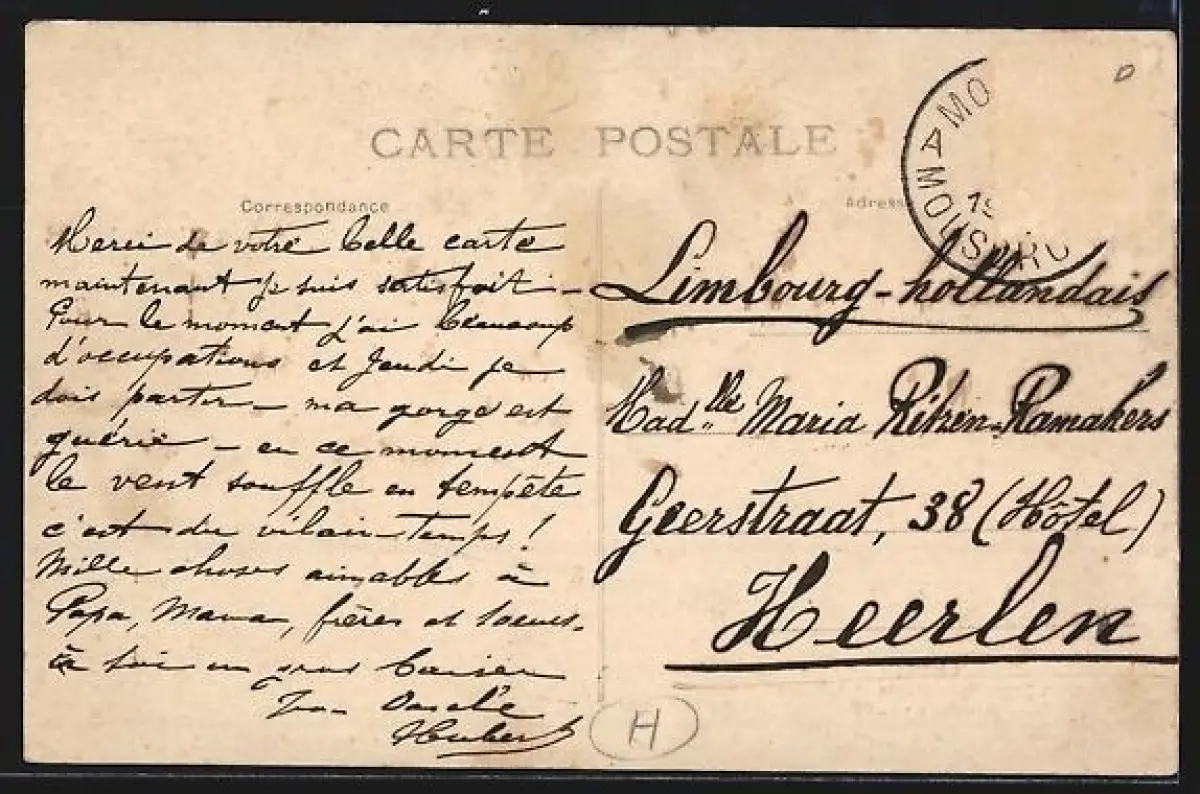 CARTE POSTALE
Correspondance
Adress
Merci de votre belle carte
maintenant je suis satisfait –
Pour le moment j'ai beaucoup
d'occupations et Jeudi je
dois partir – ma gorge est
guérie – en ce moment
le vent souffle en tempête
c'est du vilain temps !
Mille choses aimables à
Papa, Mama, frères et soeurs.
à toi un gros baiser
Hubert
MO
A MOUS
19
Limbourg-hollandais
Mad.lle Maria Ritzen-Ramakers
Geerstraat, 38 (Hôtel)
Heerlen
H